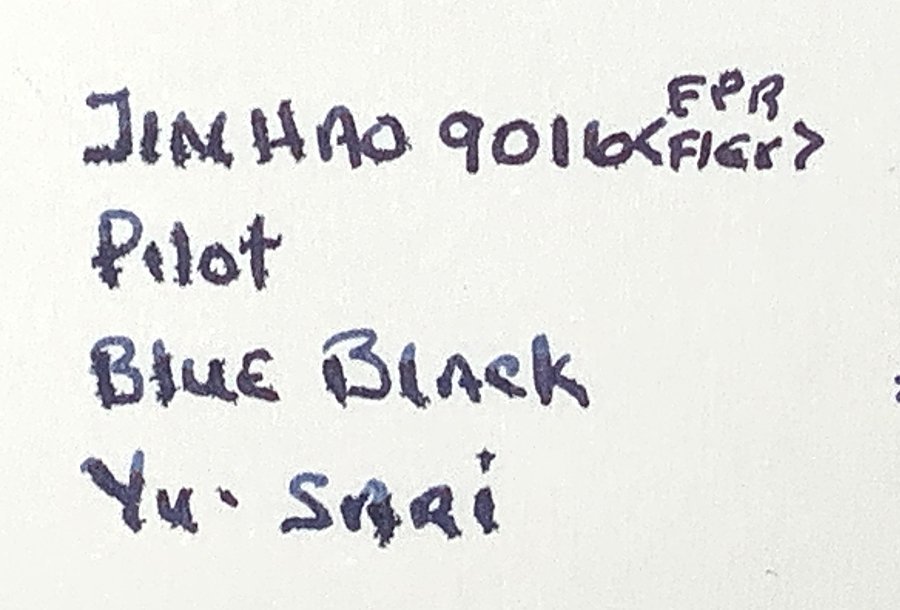 JINHAO 9016 <FPR Flex>
Pilot
Blue Black
Yu-Sari